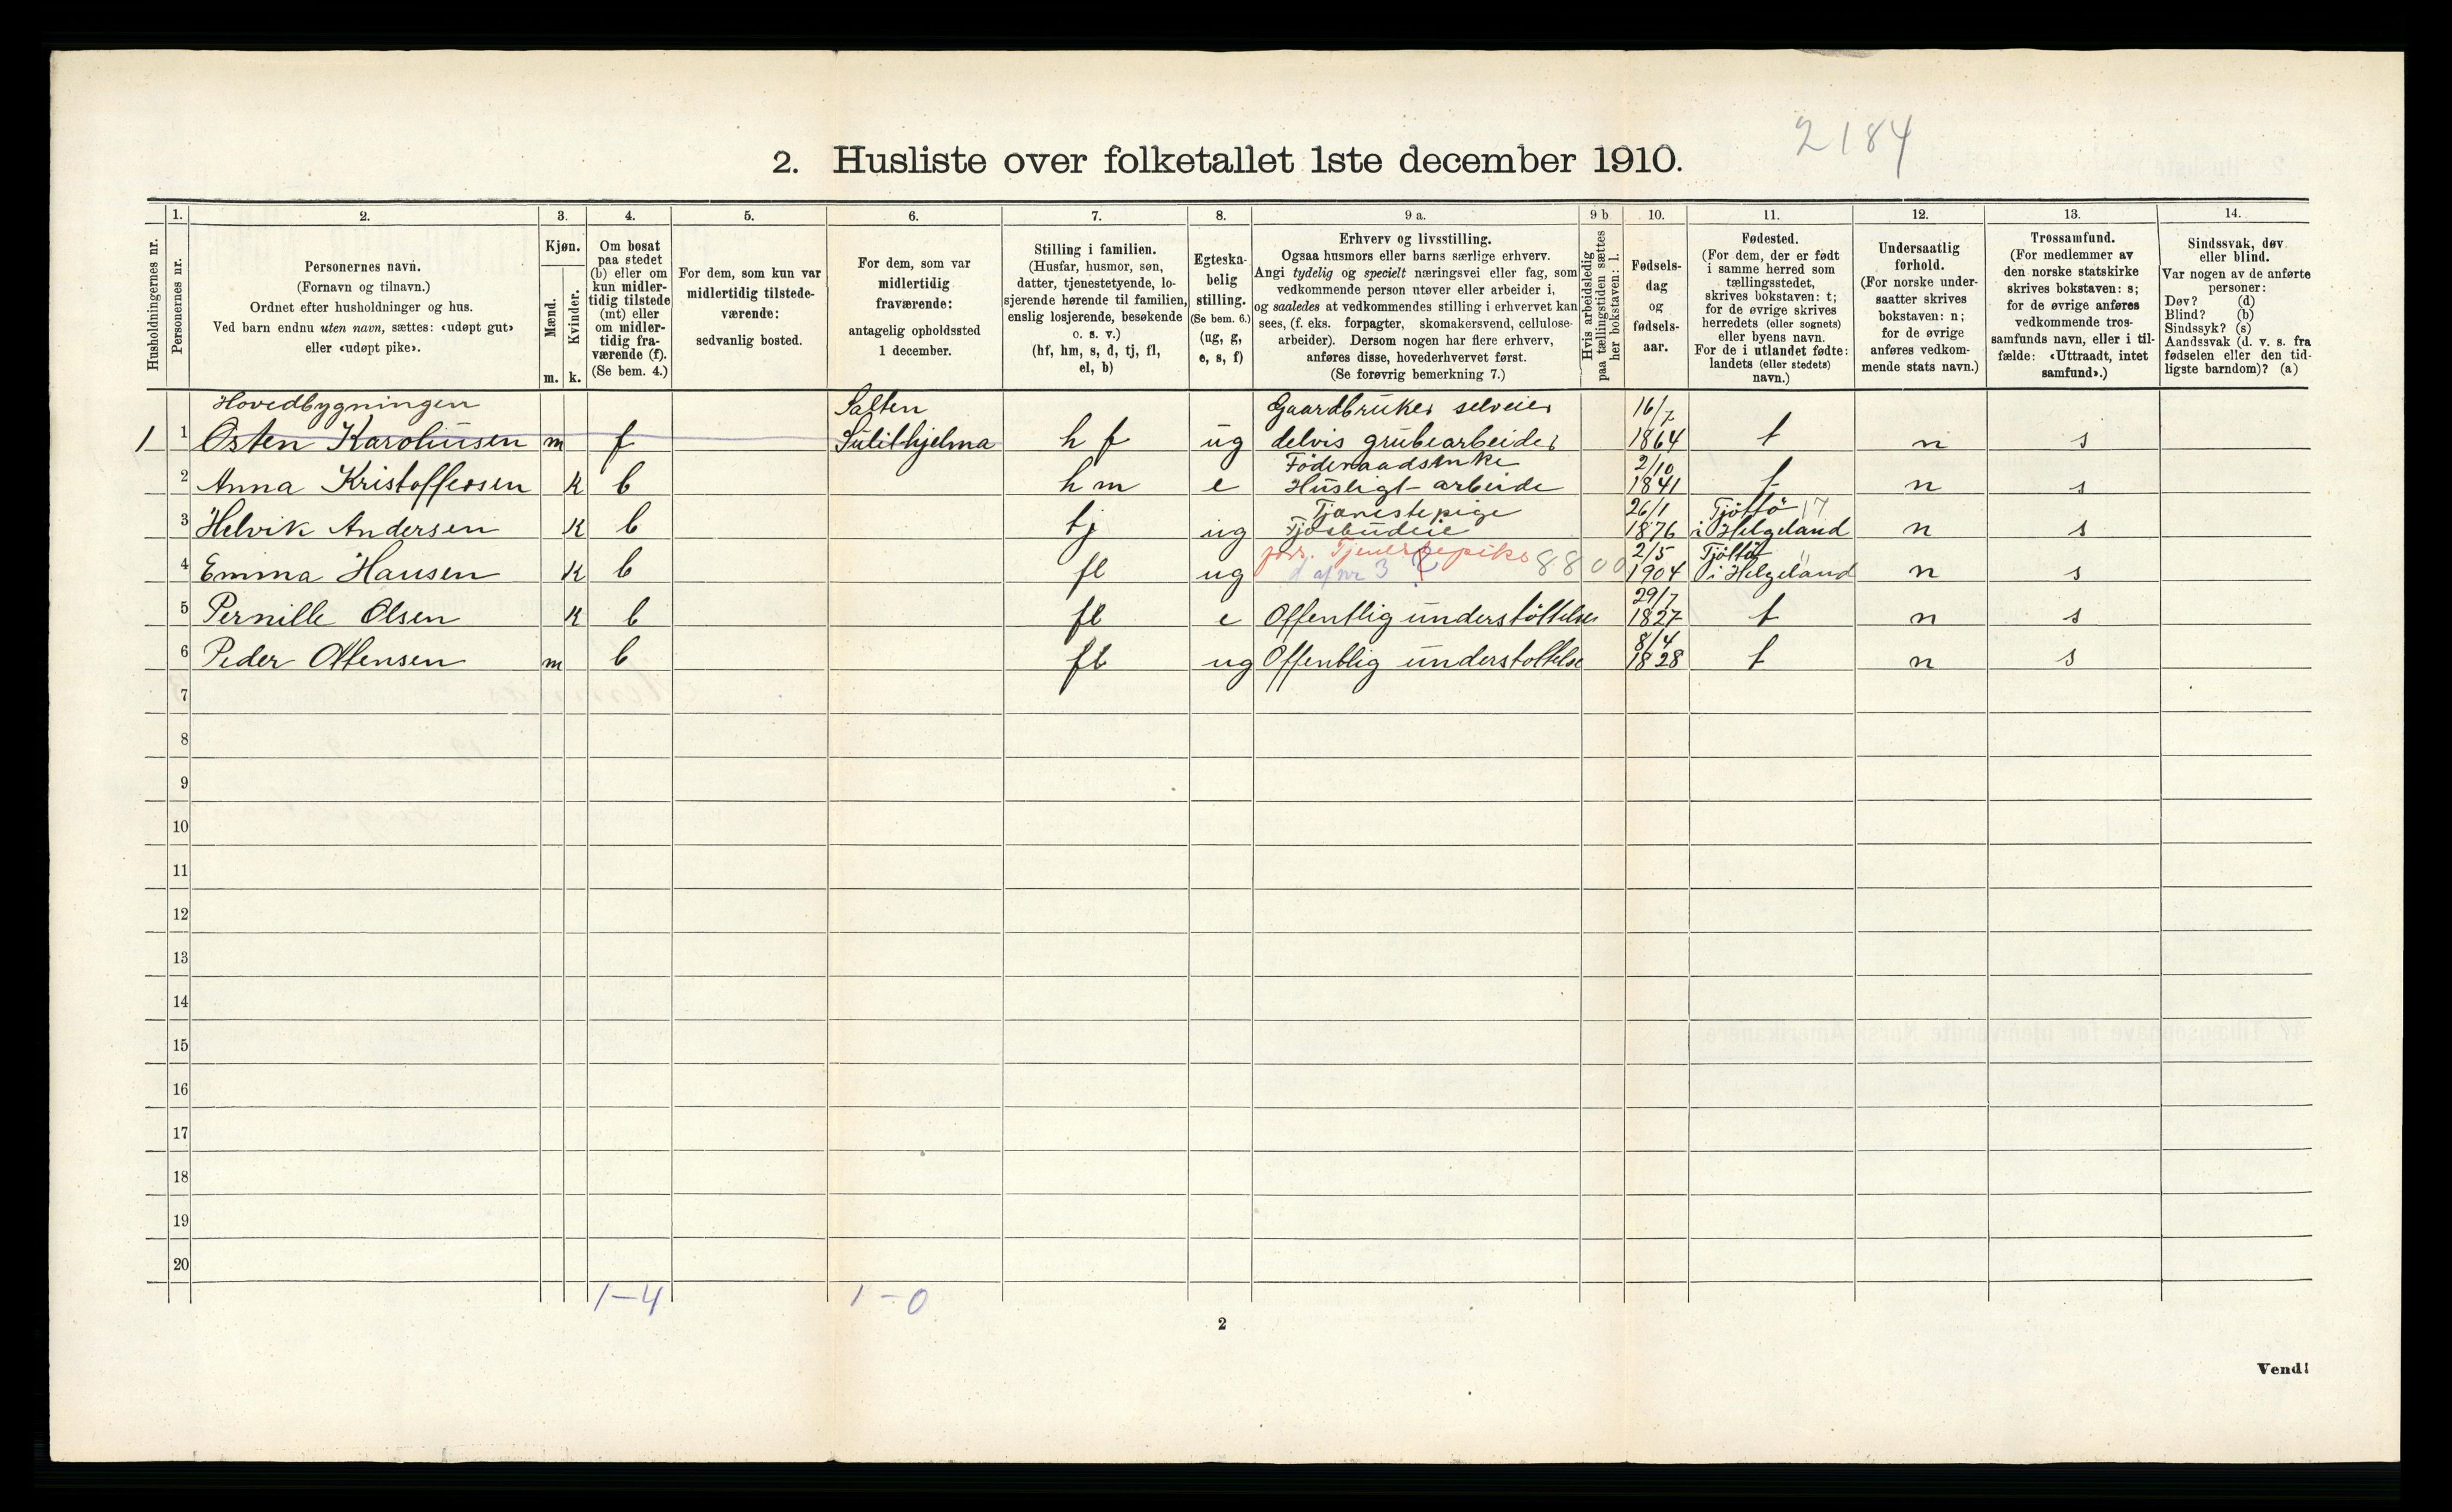 2184
2. Husliste over folketallet 1ste december 1910.
Husholdningernes nr.
1.
Personernes nr.
2.
Personernes navn.
(Fornavn og tilnavn.)
Ordnet efter husholdninger og hus.
Ved barn endnu uten navn, sættes: «udøpt gut»
eller «udøpt pike».
3.
Kjøn.
Mænd.
Kvinder.
m. k.
4.
Om bosat
paa stedet
(b) eller om
kun midler-
tidig tilstede
(mt) eller
om midler-
tidig fra-
værende (f).
(Se bem. 4.)
5.
For dem, som kun var
midlertidig tilstede-
værende:
sedvanlig bosted.
6.
For dem, som var
midlertidig
fraværende:
antagelig opholdssted
1 december.
7.
Stilling i familien.
(Husfar, husmor, søn,
datter, tjenestetyende, lo-
sjerende hørende til familien,
enslig losjerende, besøkende
o. s. v.)
(hf, hm, s, d, tj, fl,
el, b)
8.
Egteska-
belig
stilling.
(Se bem. 6.)
(ug, g,
e, s, f)
9 a.
Erhverv og livsstilling.
Ogsaa husmors eller barns særlige erhverv.
Angi tydelig og specielt næringsvei eller fag, som
vedkommende person utøver eller arbeider i,
og saaledes at vedkommendes stilling i erhvervet kan
sees, (f. eks. forpagter, skomakersvend, cellulose-
arbeider). Dersom nogen har flere erhverv,
anføres disse, hovederhvervet først.
(Se forøvrig bemerkning 7.)
9 b
Hvis arbeidsledig
paa tællingstiden sættes
her bokstaven: l.
10.
Fødsels-
dag
og
fødsels-
aar.
11.
Fødested.
(For dem, der er født
i samme herred som
tællingsstedet,
skrives bokstaven: t;
for de øvrige skrives
herredets (eller sognets)
eller byens navn.
For de i utlandet fødte:
landets (eller stedets)
navn.)
12.
Undersaatlig
forhold.
(For norske under-
saatter skrives
bokstaven: n;
for de øvrige
anføres vedkom-
mende stats navn.)
13.
Trossamfund.
(For medlemmer av
den norske statskirke
skrives bokstaven: s;
for de øvrige anføres
vedkommende tros-
samfunds navn, eller i til-
fælde: «Uttraadt, intet
samfund».)
14.
Sindssvak, døv
eller blind.
Var nogen av de anførte
personer:
Døv? (d)
Blind? (b)
Sindssyk? (s)
Aandssvak (d. v. s. fra
fødselen eller den tid-
ligste barndom)? (a)
Hovedbygningen Salten Gaardbruker selveier 16/7
1 1 Østen Karoliusen m f Sulithjelma hf ug delvis grubearbeider 1864 t n s
Föderaadsenke 2/10
2 Anna Kristoffersen k b hm e Husligt-arbeide 1841 t n s
Tjænestepige 26/1 Tjöttö 17
3 Helvik Andersen k b tj ug Fjösbudeie 1876 i Helgeland n s
Tjenestepike 8800 2/5 Tjöttö "
4 Emma Hansen k b fl ug d af nr 3 1904 i Helgeland n s
29/7
5 Pernille Olsen k b fl e Offentlig understöttelse 1827 t n s
8/4
6 Peder Ottensen m b fl ug Offentlig understöttelse 1828 t n s
7
8
9
10
11
12
13
14
15
16
17
18
19
20
1-4 1-0
2
Vend!